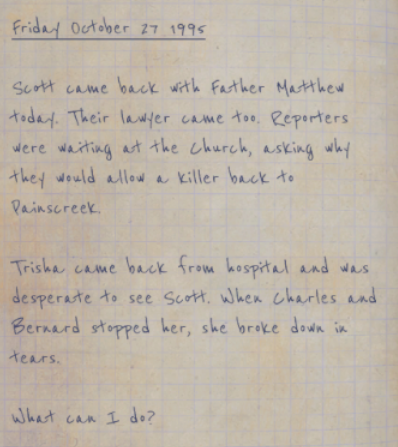 Friday October 27 1995
Scott came back with Father Matthew
today. Their lawyer came too. Reporters
were waiting at the church, asking why
they would allow a killer back to
Painscreek.
Trisha came back from hospital and was
desperate to see Scott. When Charles and
Bernard stopped her, she broke down in
tears.
What can I do?